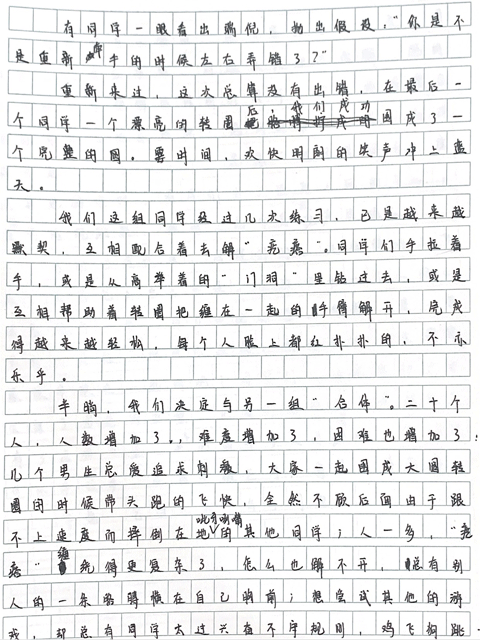 有同学一眼看出端倪，抛出假设："你是不
是重新牵手的时候左右弄错了？"
重新来过，这次总算没有出错，在最后一
个同学一个漂亮的转圈后，我们成功围成了一
个完整的圆。霎时间，欢快明朗的笑声冲上蓝
天。
我们这组同学经过几次练习，已是越来越
默契，互相配合着去解"疙瘩"。同学们手拉着
手，或是从高举着的"门羽"里钻过去，或是
互相帮助着转圈把缠在一起的手臂解开，完成
得越来越轻松，每个人脸上都红扑扑的，不亦
乐乎。
半晌，我们决定与另一组"合体"。二十个
人，人数增加了，难度增加了，困难也增加了：
几个男生总爱追求刺激，大家一起围成大圆转
圈的时候带头跑的飞快，全然不顾后面由于跟
不上速度而摔倒在地的其他同学；人一多，"疙
瘩"缠绕得更复杂了，怎么也解不开，总有别
人的一条胳膊横在自己胸前；想尝试其他的游
戏，却总有同学太过兴奋不守规则，鸡飞狗跳